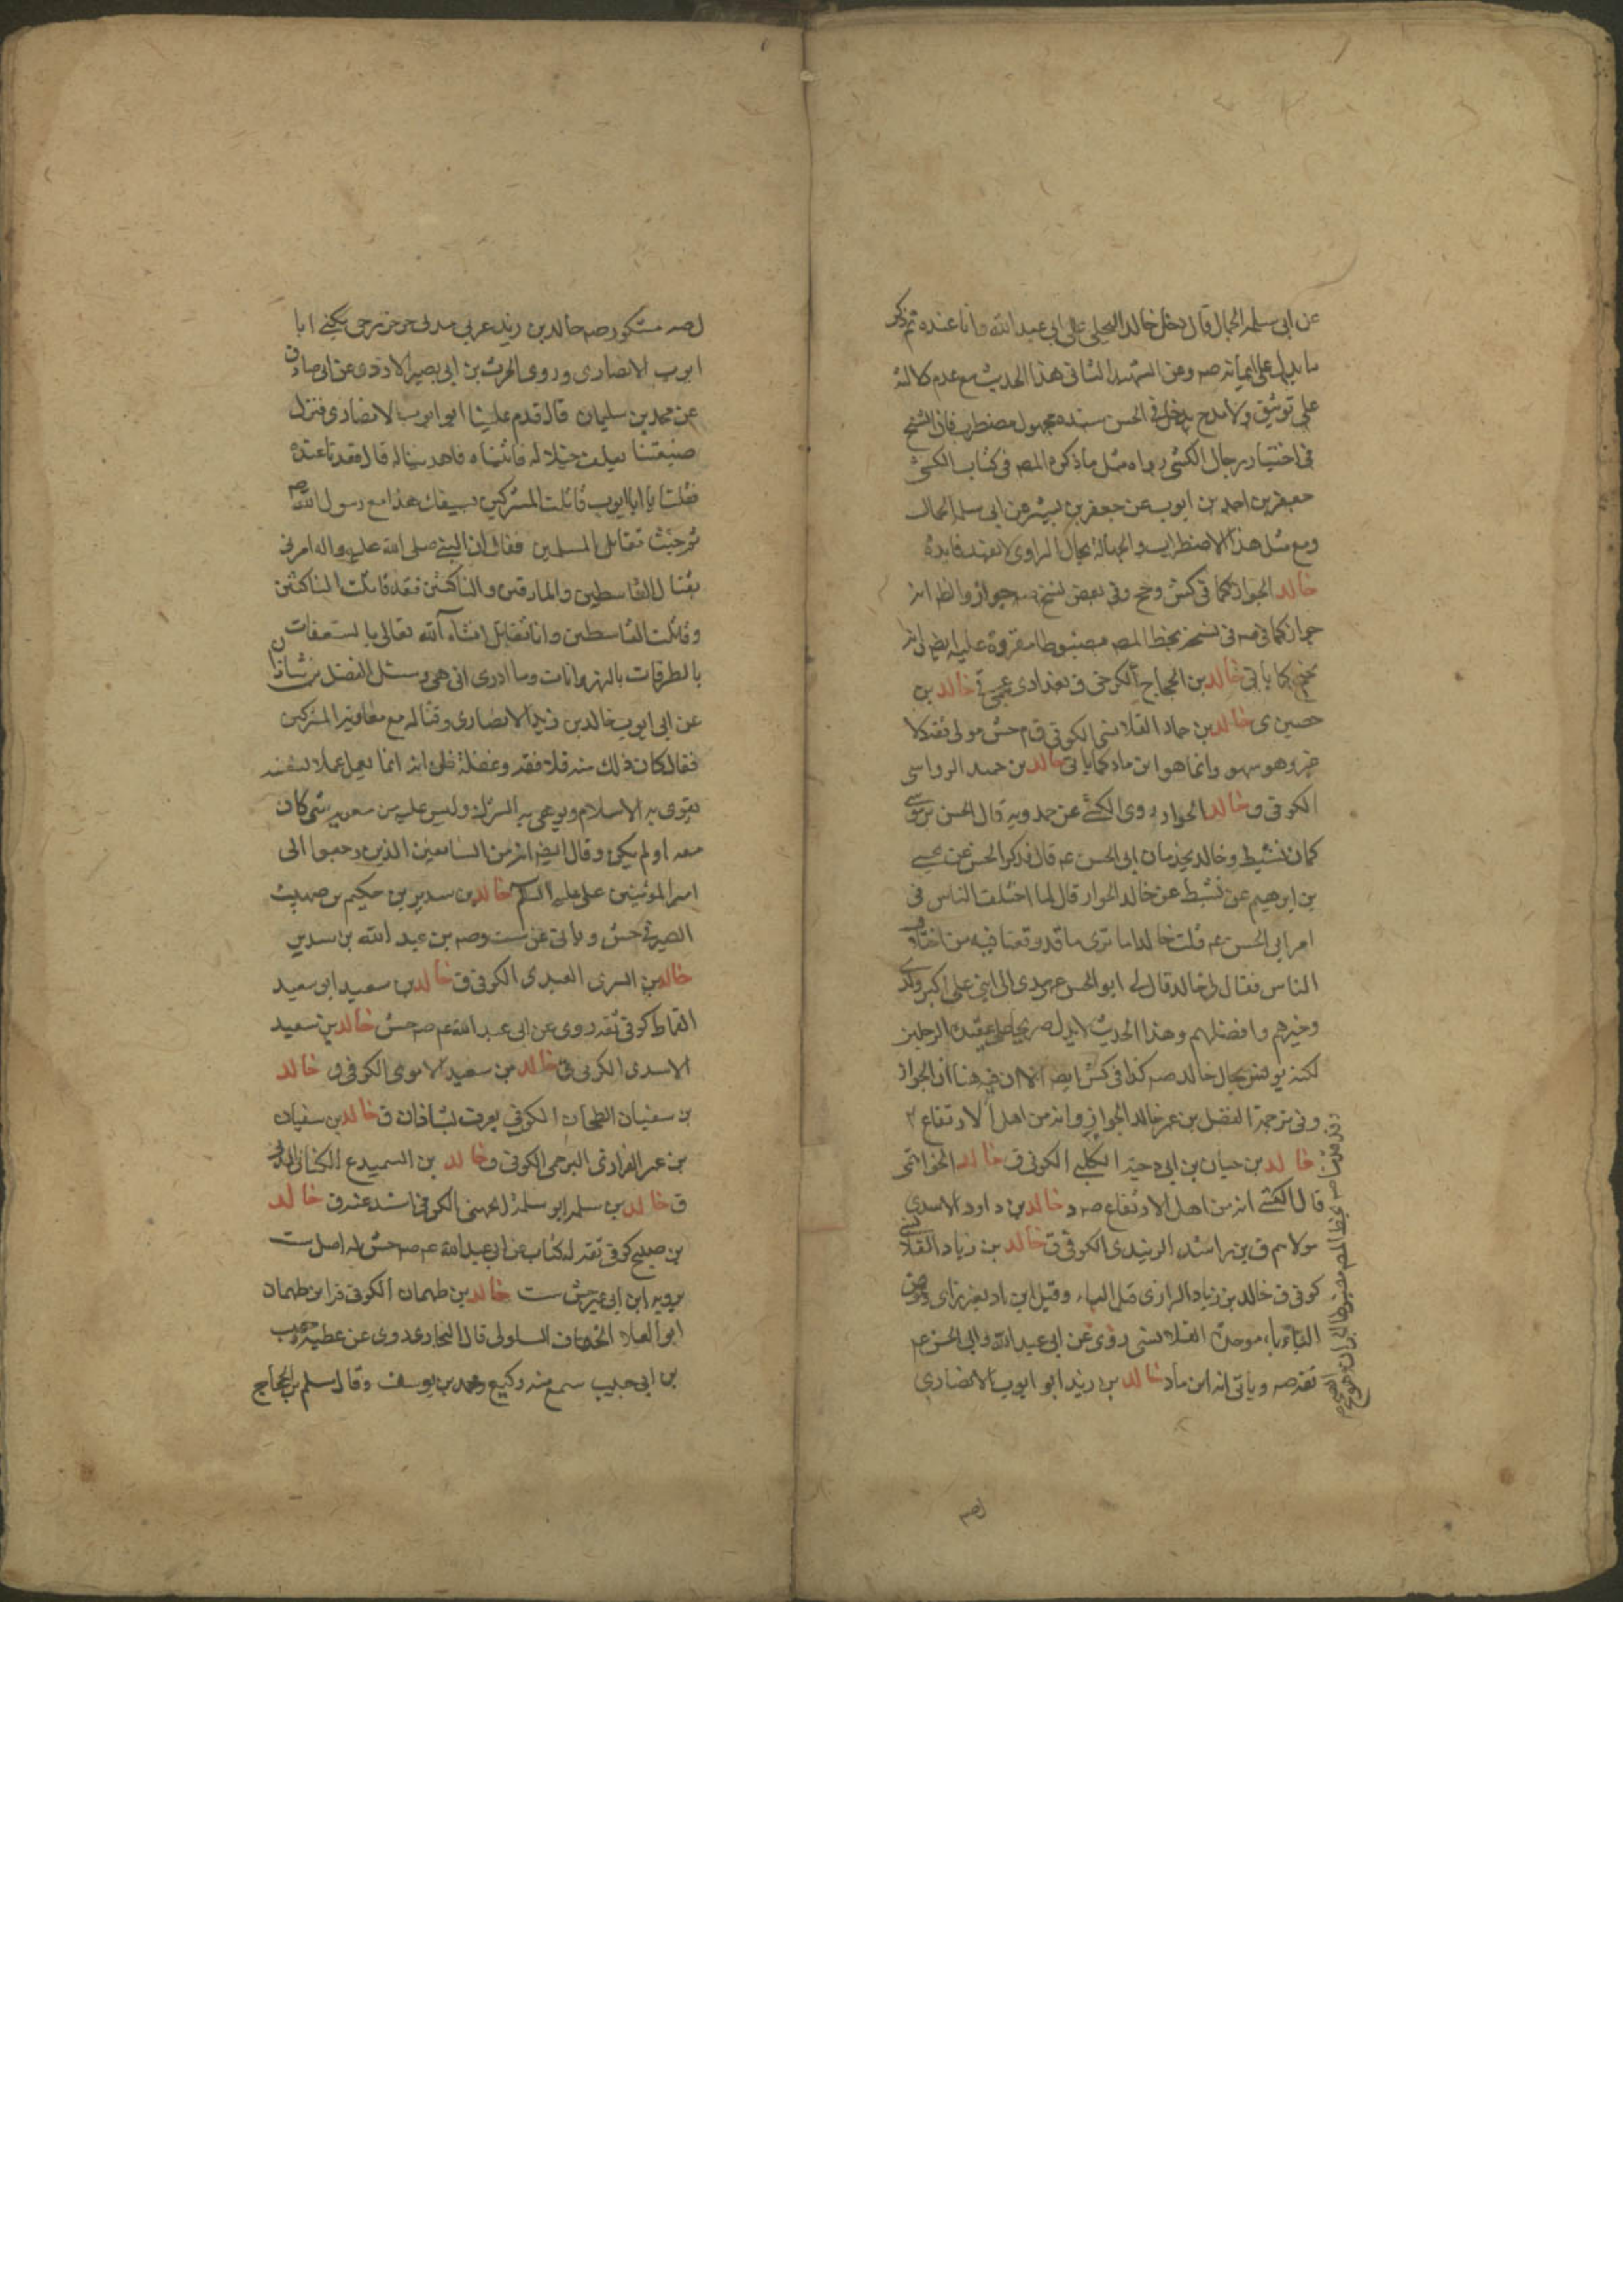 عن ابى سلمة الجمال قال دخل خالد البجلى على ابى عبد الله وانا عنده ثم ذكر
ما يدل على ايمانه صه وعن الشهيد الثانى هذا الحديث مع عدم دلالته
على توثيق ولا مدح يدخل فى الحسن سنده مجهول مضطرب فان الشيخ
فى اختيار رجال الكشى رواه مثل ما ذكره المصه فى كتاب الكشى
جعفر بن احمد بن ايوب عن جعفر بن بشير عن ابى سلمة الجمال
ومع مثل هذا الاضطراب والجهالة بحال الراوى لا تفيد فايدة
خالد الجواز كما فى كش وجخ وفى بعض نسخ جواز والظ انه
جوازكما فى صه فى نسخة بخط المصه مضبوطا مقروة عليه ايضا انه
كما ياتى خالد بن الحجاج الكرخى ق بغدادى خالد بن
حسين ى خالد بن حماد القلانسى الكوفى ق م جش مولى ثقة د لا
وهو سهو وانما هو ابن ماد كما ياتى خالد بن حميد الرواسى
الكوفى ق خالد الجواز روى الكشى عن حمدويه قال الحسن بن موسى
كان نشيط وخالد يخدمان ابى الحسن عم قال فذكر الحسن عن يحيى
بن ابرهيم عن نشيط عن خالد الجواز قال لما اختلف الناس فى
امر ابى الحسن عم قلت خالد اما ترى ما قد وقعنا فيه من اختلاف
الناس فقال لى خالد قال لى ابو الحسن عهدى الى ابنى على اكبر ولدى
وخيرهم وافضلهم وهذا الحديث لا يدل صريحا على عقيدة الرجلين
لكنه يونس بحال خالد صه كذا فى كش ايضا الا ان فيه هنا ان الجواز
وفى ترجمة الفضل بن عمر خالد الجواز وانه من اهل الارتفاع
خالد بن حيان بن ابى دحية الكلبى الكوفى ق خالد الخواتيمى
قال الكشى انه من اهل الارتفاع صه د خالد بن داود الاسدى
مولاهم ق بن راشد الزبيدى الكوفى ق خالد بن زياد القلانسى
كوفى ق خالد بن زياد الزاى قبل الياء وقيل ابن باد بغير زاى وعوض
الياء باء موحدة القلانسى روى عن ابى عبد الله وابى الحسن عم
ثقة صه وياتى انه ابن ماد خالد بن زيد ابو ايوب الانصارى
لصه
لصه مشكور صه خالد بن زيد عربى مدنى خزرجى يكنى ابا
ايوب الانصارى وروى الحرث بن ابى بصير الازدى عن ابى صادق
عن محمد بن سليمان قال قدم علينا ابو ايوب الانصارى فنزل
ضيعتنا يعلف خيلا له فاتيناه فاهدينا له قال فقعدنا عنده
فقلت يا ابا ايوب قاتلت المشركين بسيفك هذا مع رسول الله ص
ثم جئت تقاتل المسلمين فقال ان النبى صلى الله عليه واله امرنى
بقتال القاسطين والمارقين والناكثين فقد قاتلت الناكثين
وقاتلت القاسطين وانا نقاتل انشاء الله تعالى بالسعفات
بالطرقات بالنهروانات وما ادرى انى هى وسئل الفضل بن شاذان
عن ابى ايوب خالد بن زيد الانصارى وقتاله مع معاوية المشركين
فقال كان ذلك منه قلة فقه وغفلة ظن انه انما يعمل عملا لنفسه
يقوى به الاسلام ويوهى به الشرك وليس عليه من معوية شى كان
معه او لم يكن وقال ايضا انه من السابقين الذين رجعوا الى
امير المؤمنين على عليه السلام خالد بن سدير بن حكيم بن صهيب
الصيرفى جش وياتى عن ست وصه بن عبد الله بن سدير
خالد بن السرى العبدى الكوفى ق خالد بن سعيد ابو سعيد
القماط كوفى ثقة روى عن ابى عبد الله عم صه جش خالد بن سعيد
الاسدى الكوفى ق خالد بن سعيد الاموى الكوفى ق خالد
بن سفيان الطحان الكوفى يعرف بشاذان ق خالد بن سفيان
بن عمر الفزارى البرجمى الكوفى ق خالد بن السميدع الكنانى المدنى
ق خالد بن سلمة ابو سلمة الجهنى الكوفى اسند عنه ق خالد
بن صبيح كوفى ثقة له كتاب عن ابى عبد الله عم صه جش له اصل ست
يرويه ابن ابى عمير جش ست خالد بن طهمان الكوفى قر ابن طهمان
ابو العلا الخفاف السلولى قال البخارى روى عن عطية وحبيب
بن ابى حبيب سمع منه وكيع ومحمد بن يوسف وقال مسلم بن الحجاج